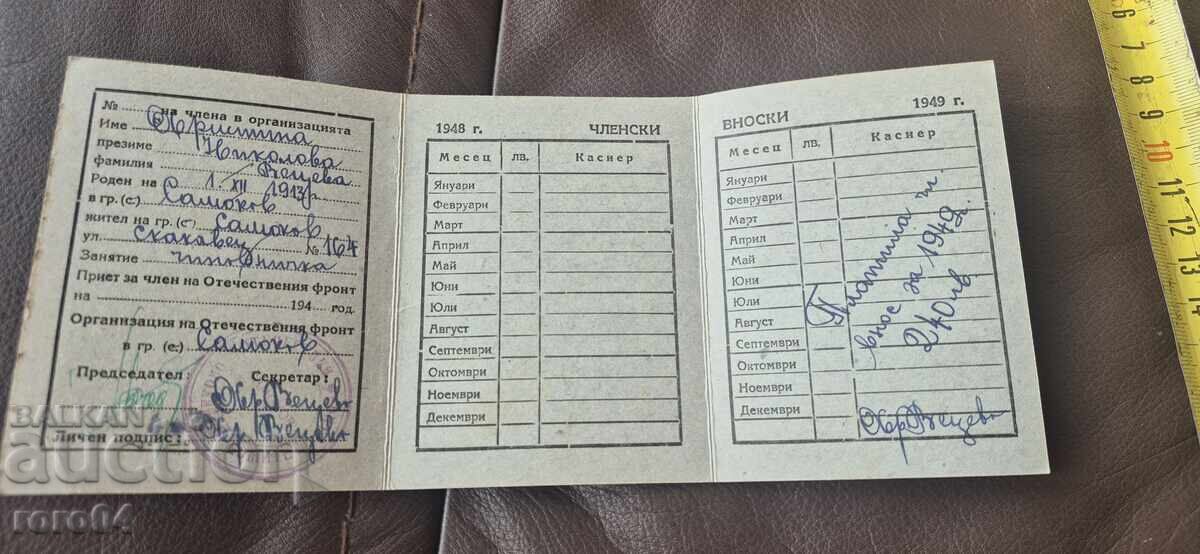 № на члена в организацията
Име Христина
презиме Николова
фамилия Вещева
Роден на 1. XII 1913 г.
в гр. (с.) Самоков
жител на гр. (с) Самоков
ул. Скакавец № 164
Занятие чиновничка
Приет за член на Отечествения фронт
на 194 год.
Организация на Отечествения фронт
в гр. (с.) Самоков
Председател: Секретар:
Хр Вещева
Личен подпис: Хр. Вещева
1948 г. ЧЛЕНСКИ
Месец лв. Касиер
Януари
Февруари
Март
Април
Май
Юни
Юли
Август
Септември
Октомври
Ноември
Декември
ВНОСКИ 1949 г.
Месец лв. Касиер
Януари
Февруари
Март
Април
Май
Юни
Юли
Август
Септември
Октомври
Ноември
Декември
Платила чл.
внос за 1949 г.
240 лв
Хр Вещева
6 7 8 9 10 11 12 13 14
BALKAN
auction
roro04